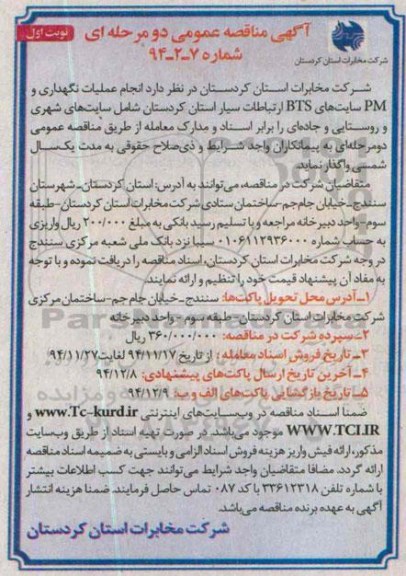 آگهی مناقصه عمومی دو مرحله ای
شماره ۷-۲-۹۴
نوبت اول
شرکت مخابرات استان کردستان
شرکت مخابرات استان کردستان در نظر دارد انجام عملیات نگهداری و
PM سایت‌های BTS ارتباطات سیار استان کردستان شامل سایت‌های شهری
و روستایی و جاده‌ای را برابر اسناد و مدارک معامله از طریق مناقصه عمومی
دومرحله‌ای به پیمانکاران واجد شرایط و ذی‌صلاح حقوقی به مدت یک‌سال
شمسی واگذار نماید.
متقاضیان شرکت در مناقصه، می‌توانند به آدرس: استان کردستان-شهرستان
سنندج-خیابان جام‌جم-ساختمان ستادی شرکت مخابرات استان کردستان-طبقه
سوم-واحد دبیرخانه مراجعه و با تسلیم رسید بانکی به مبلغ ۲۰۰/۰۰۰ ریال واریزی
به حساب شماره ۰۱۰۶۱۱۲۹۳۶۰۰۰ سیبا نزد بانک ملی شعبه مرکزی سنندج
در وجه شرکت مخابرات استان کردستان، اسناد مناقصه را دریافت نموده و با توجه
به مفاد آن پیشنهاد قیمت خود را تنظیم و ارائه نمایند.
۱-آدرس محل تحویل پاکت‌ها: سنندج-خیابان جام جم-ساختمان مرکزی
شرکت مخابرات استان کردستان-طبقه سوم-واحد دبیرخانه
۲-سپرده شرکت در مناقصه: ۳۶۰/۰۰۰/۰۰۰ ریال
۳-تاریخ فروش اسناد معامله: از تاریخ ۹۴/۱۱/۱۷ لغایت ۹۴/۱۱/۲۷
۴-آخرین تاریخ ارسال پاکت‌های پیشنهادی: ۹۴/۱۲/۸
۵-تاریخ بازگشایی پاکت‌های الف و ب: ۹۴/۱۲/۹
ضمنا اسناد مناقصه در وب‌سایت‌های اینترنتی www.Tc-kurd.ir و
WWW.TCI.IR موجود می‌باشد. در صورت تهیه اسناد از طریق وب‌سایت
مذکور، ارائه فیش واریز هزینه فروش اسناد الزامی و بایستی به ضمیمه اسناد مناقصه
ارائه گردد. مضافا متقاضیان واجد شرایط می‌توانند جهت کسب اطلاعات بیشتر
با شماره تلفن ۳۳۶۱۲۳۱۸ با کد ۰۸۷ تماس حاصل فرمایند. ضمنا هزینه انتشار
آگهی به عهده برنده مناقصه می‌باشد.
شرکت مخابرات استان کردستان